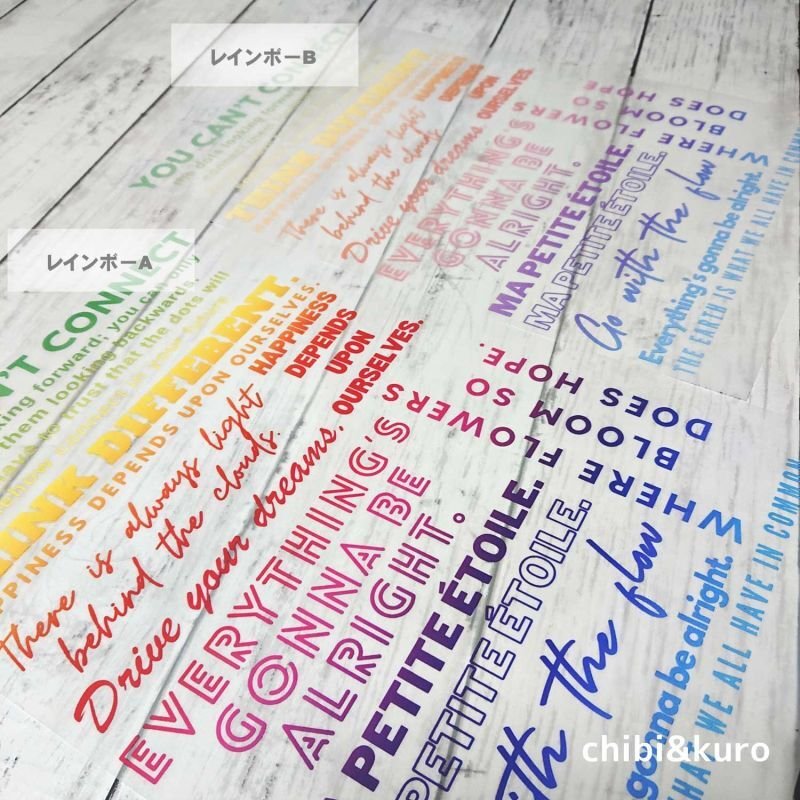 レインボーB
YOU CAN'T CONNECT
THINK DIFFERENT.
HAPPINESS
DEPENDS
UPON
OURSELVES.
There is always light
behind the clouds.
Drive your dreams.
EVERYTHING'S
GONNA BE
ALRIGHT.
WHERE FLOWERS
BLOOM SO
DOES HOPE
MA PETITE ÉTOILE.
MA PETITE ÉTOILE.
Go with the flow
Everything's gonna be alright.
THE EARTH IS WHAT WE ALL HAVE IN COMMON
レインボーA
N'T CONNECT
king forward; you can only
them looking backwards.
to trust that the dots will
HINK DIFFERENT.
PPINESS DEPENDS UPON OURSELVES.
HAPPINESS
DEPENDS
UPON
OURSELVES.
There is always light
behind the clouds.
Drive your dreams.
EVERYTHING'S
GONNA BE
ALRIGHT.
WHERE FLOWERS
BLOOM SO
DOES HOPE.
A PETITE ÉTOILE.
PETITE ÉTOILE.
ith the flow
gonna be alright.
HAT WE ALL HAVE IN COMMON
chibi&kuro